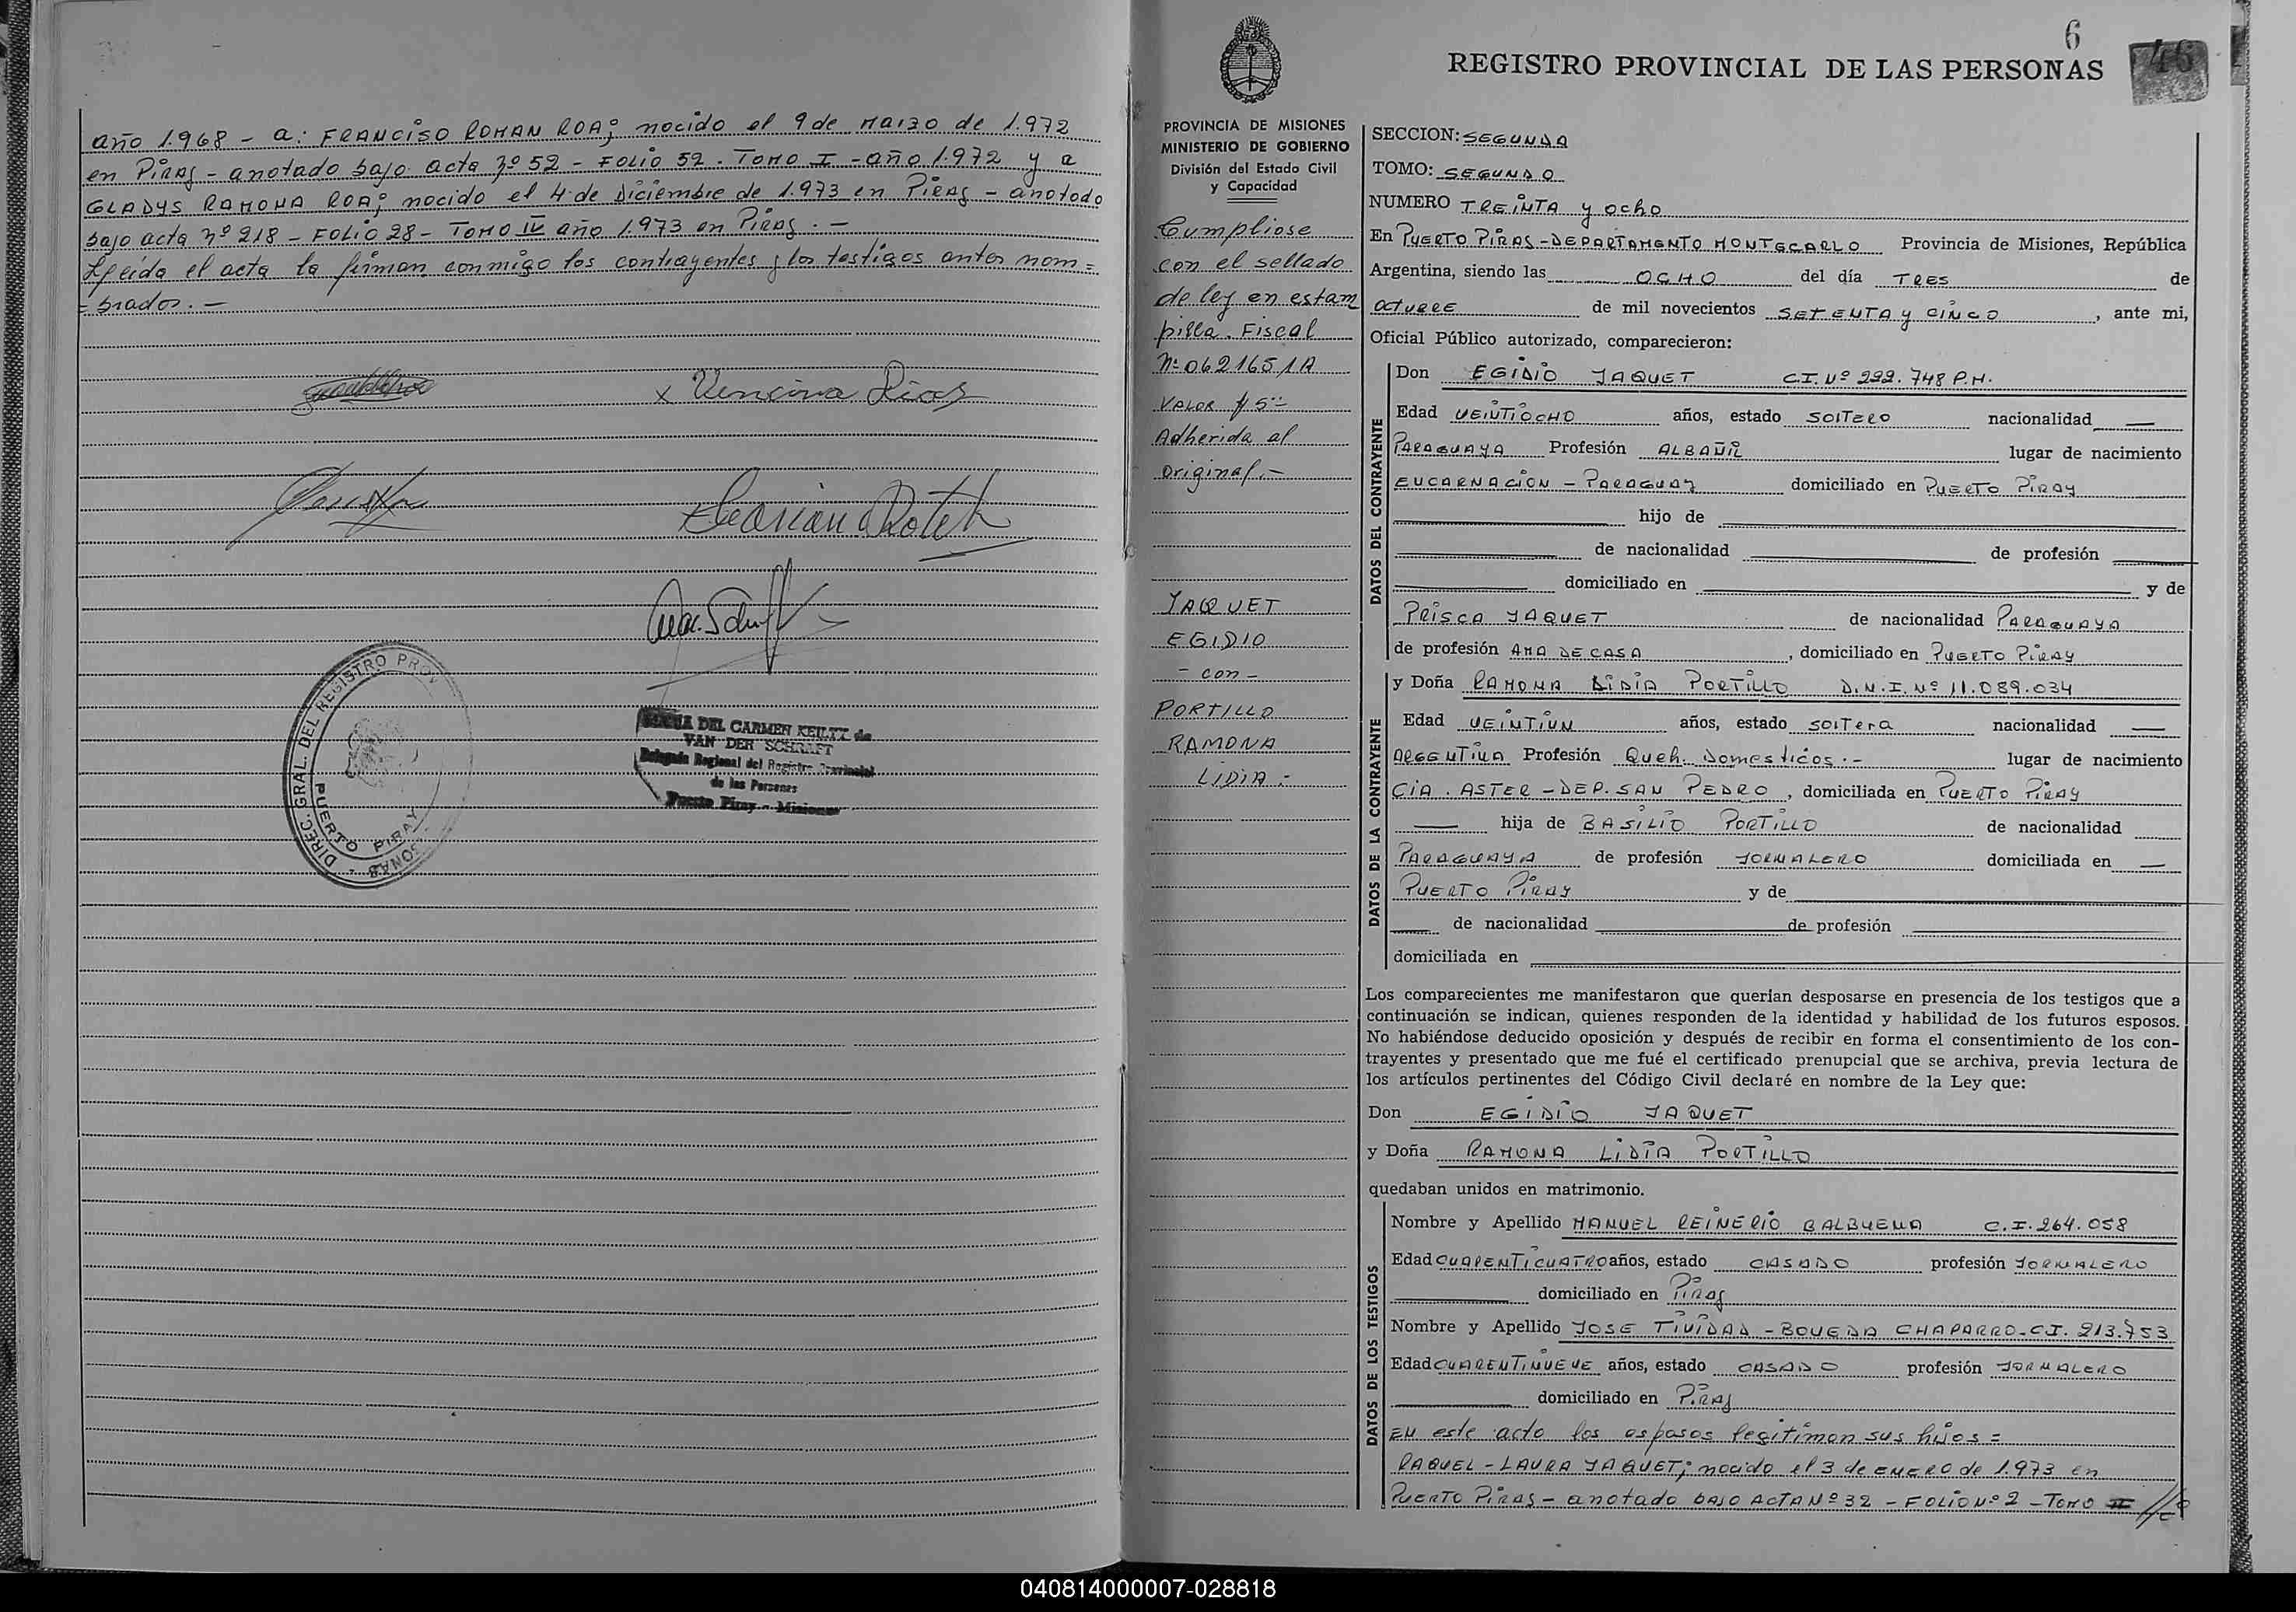 año 1.968 - a: FRANCISO ROMAN ROA; nacido el 9 de Marzo de 1.972
en Piray - anotado bajo acta nº 52 - FOLIO 52 - TOMO I - año 1.972 y a
GLADYS RAMONA ROA; nacido el 4 de Diciembre de 1.973 en Piray - anotado
bajo acta nº 218 - FOLIO 28 - TOMO IV año 1.973 en Piray. -
Leída el acta la firman conmigo los contrayentes y los testigos antes nom=
=brados. -
x Vencina Rios
DIREC. GRAL. DEL REGISTRO PROV
PUERTO PIRAY
MARIA DEL CARMEN KEILTZ de
VAN DER SCHRAFT
Delegada Regional del Registro Provincial
de las Personas
Puerto Piray - Misiones
6
46
REGISTRO PROVINCIAL DE LAS PERSONAS
PROVINCIA DE MISIONES
MINISTERIO DE GOBIERNO
División del Estado Civil
y Capacidad
Cumpliose
con el sellado
de ley en estam
pilla. Fiscal
Nº 0621651A
VALOR $ 5.-
Adherida al
original.-
JAQUET
EGIDIO
- con -
PORTILLO
RAMONA
LIDIA.-
SECCION: SEGUNDA
TOMO: SEGUNDO
NUMERO TREINTA y ocho
En PUERTO PIRAY - DEPARTAMENTO MONTECARLO Provincia de Misiones, República
Argentina, siendo las OCHO del día TRES de
OCTUBRE de mil novecientos SETENTA y CINCO, ante mi,
Oficial Público autorizado, comparecieron:
DATOS DEL CONTRAYENTE
Don EGIDIO JAQUET C.I. Nº 292.748 P.M.
Edad VEINTIOCHO años, estado SOLTERO nacionalidad
PARAGUAYA Profesión ALBAÑIL lugar de nacimiento
ENCARNACION - PARAGUAY domiciliado en PUERTO PIRAY
hijo de
de nacionalidad de profesión
domiciliado en y de
PRISCA JAQUET de nacionalidad PARAGUAYA
de profesión AMA DE CASA, domiciliado en PUERTO PIRAY
DATOS DE LA CONTRAYENTE
y Doña RAMONA LIDIA PORTILLO D.N.I. Nº 11.089.034
Edad VEINTIUN años, estado SOLTERA nacionalidad
ARGENTINA Profesión Queh. Domesticos.- lugar de nacimiento
CIA. ASTER - DEP. SAN PEDRO, domiciliada en PUERTO PIRAY
hija de BASILIO PORTILLO de nacionalidad
PARAGUAYA de profesión JORNALERO domiciliada en
PUERTO PIRAY y de
de nacionalidad de profesión
domiciliada en
Los comparecientes me manifestaron que querían desposarse en presencia de los testigos que a
continuación se indican, quienes responden de la identidad y habilidad de los futuros esposos.
No habiéndose deducido oposición y después de recibir en forma el consentimiento de los con-
trayentes y presentado que me fué el certificado prenupcial que se archiva, previa lectura de
los artículos pertinentes del Código Civil declaré en nombre de la Ley que:
Don EGIDIO JAQUET
y Doña RAMONA LIDIA PORTILLO
quedaban unidos en matrimonio.
DATOS DE LOS TESTIGOS
Nombre y Apellido MANUEL REINERIO BALBUENA C.I. 264.058
Edad CUARENTICUATRO años, estado CASADO profesión JORNALERO
domiciliado en Piray
Nombre y Apellido JOSE TIVIDAD - BOVEDA CHAPARRO - C.I. 213.753
Edad CUARENTINUEVE años, estado CASADO profesión JORNALERO
domiciliado en Piray
EN este acto los esposos legitiman sus hijos =
RAQUEL - LAURA JAQUET; nacido el 3 de ENERO de 1.973 en
PUERTO PIRAY - anotado BAJO ACTA Nº 32 - FOLIO Nº 2 - TOMO II
040814000007-028818